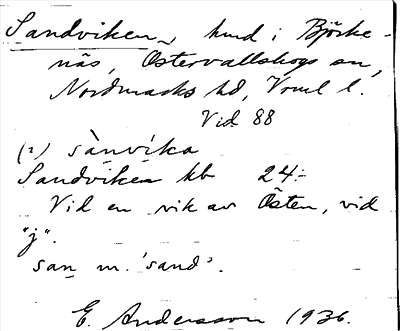 Sandviken, hmd i Björke-
näs, Östervallskogs sn,
Nordmarks hd, Vrml l.
Vid 88
(i) sànvíka
Sandviken kb 24:-
Vid en vik av Östen, vid
"j".
san m. 'sand'.
E. Andersson 1936.